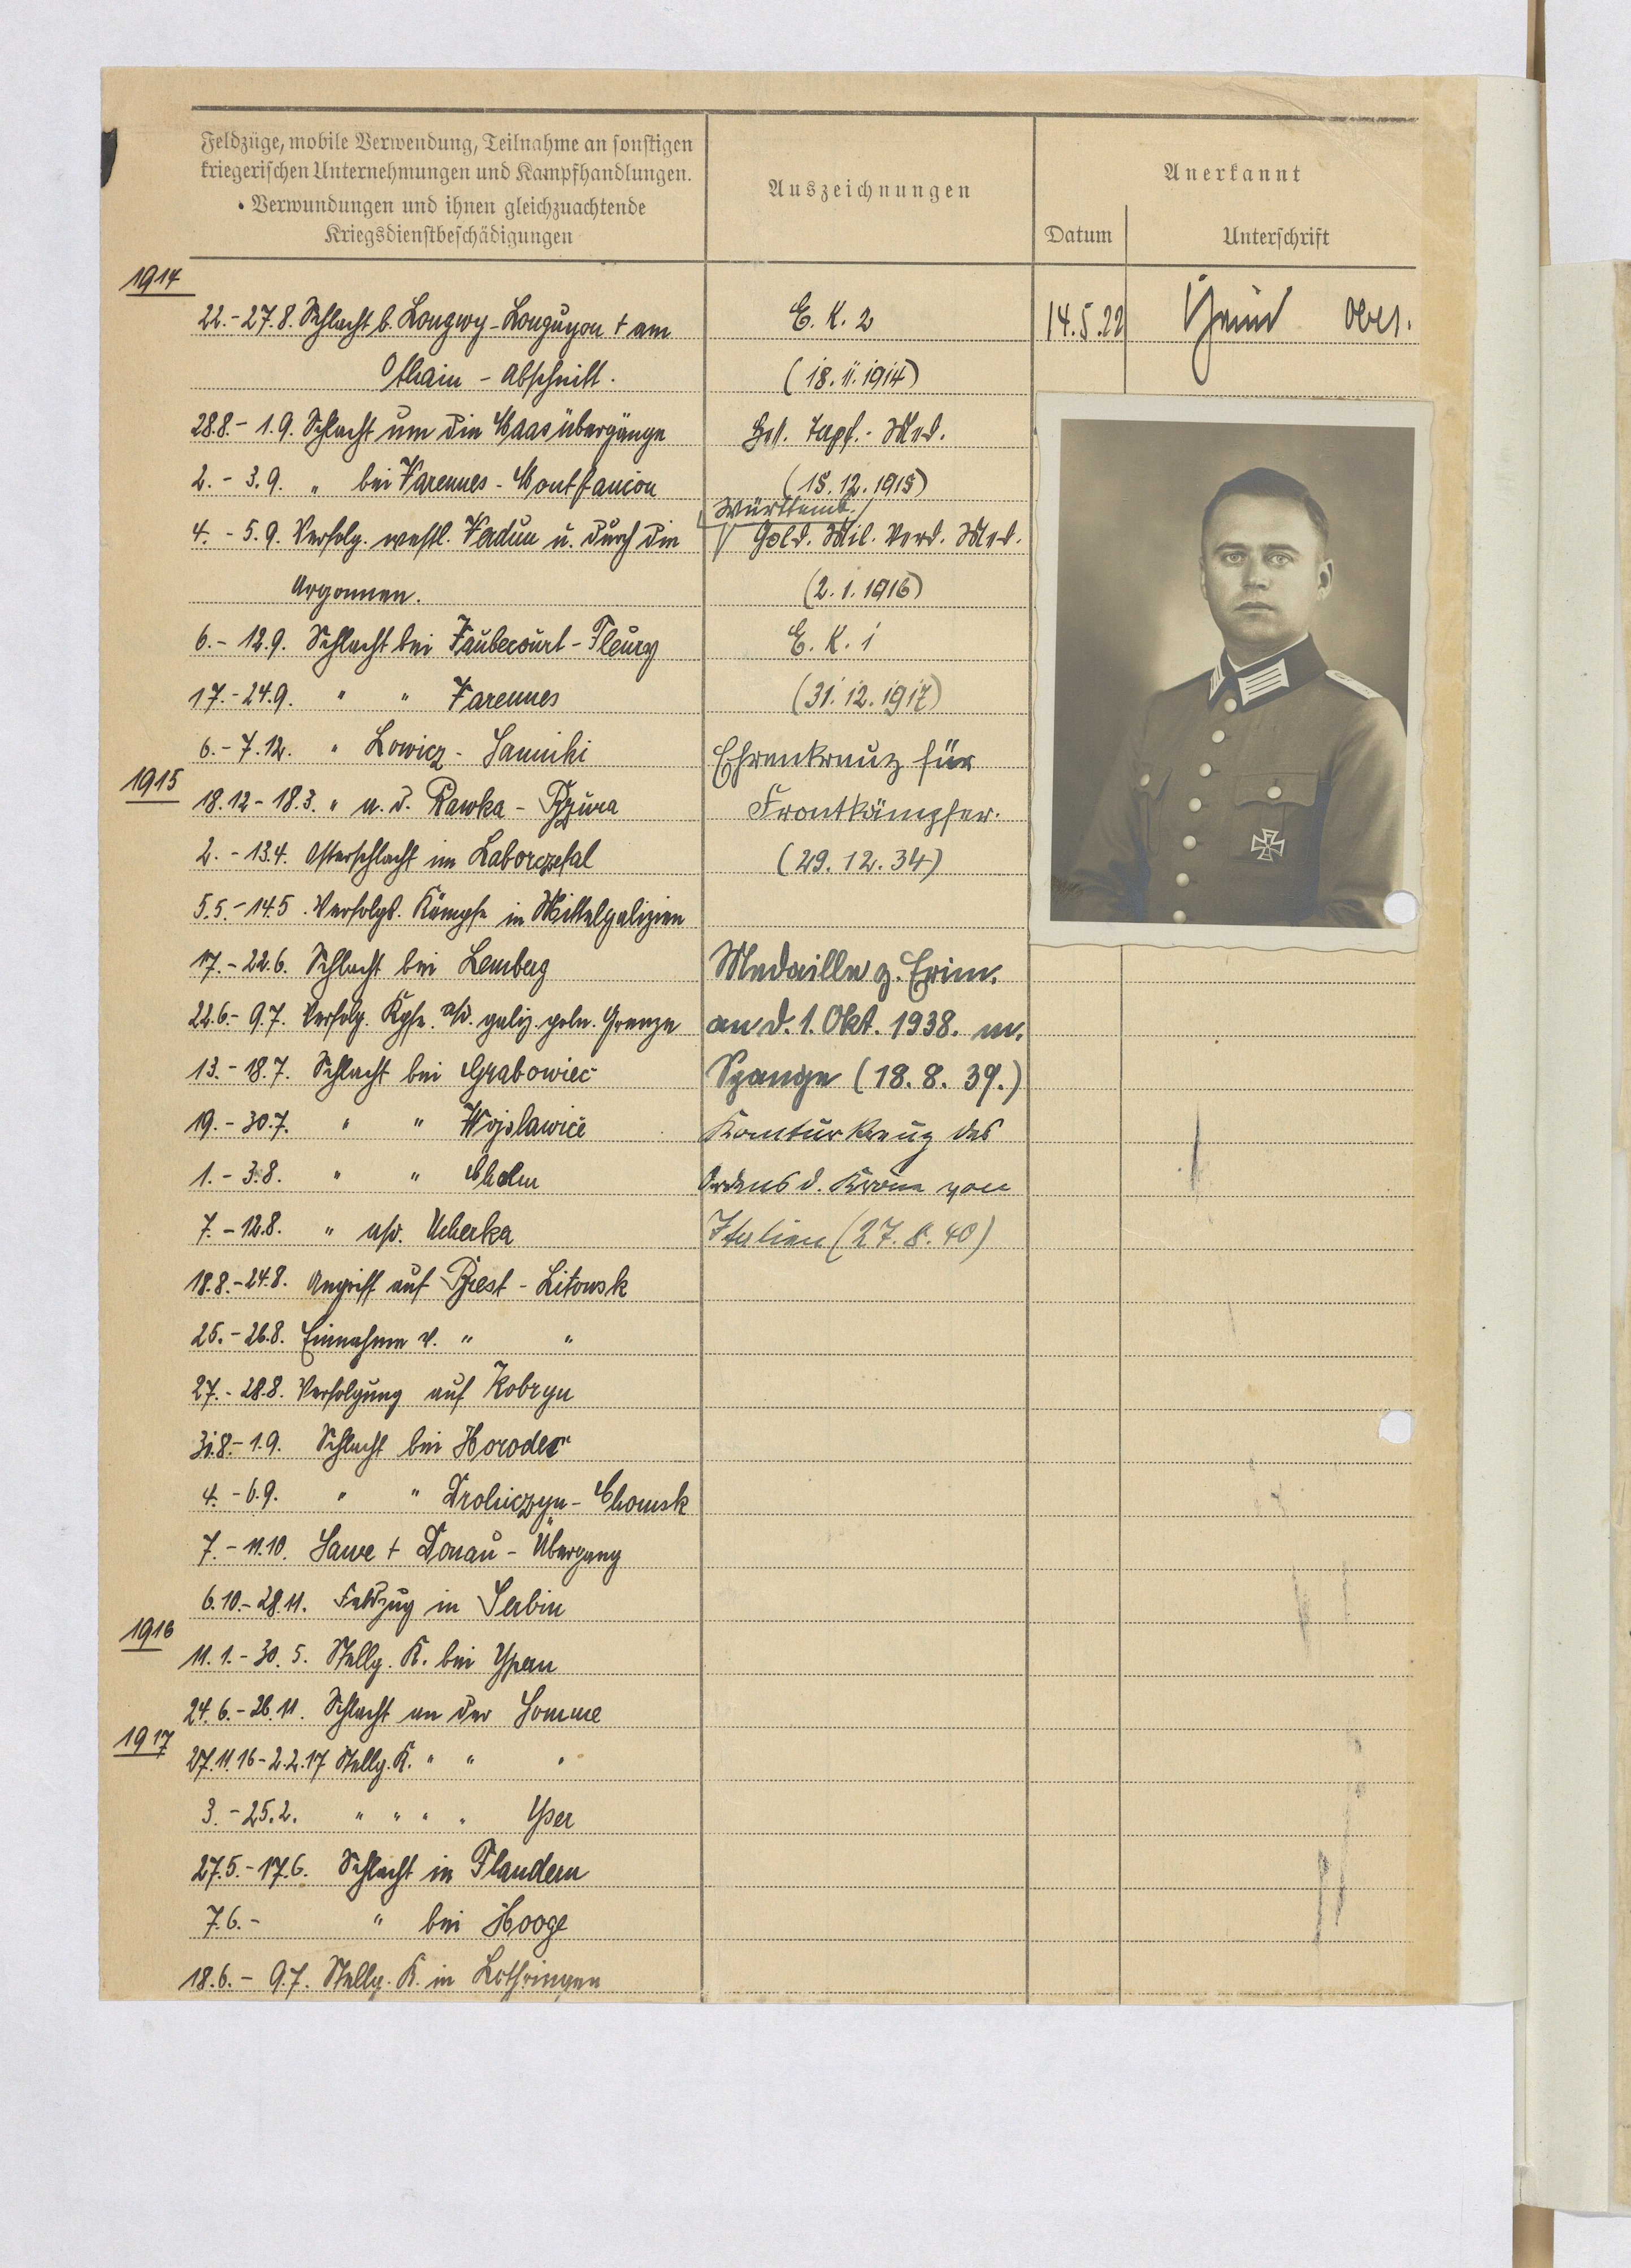 Feldzüge, mobile Verwendung, Teilnahme an sonstigen
kriegerischen Unternehmungen und Kampfhandlungen.
• Verwundungen und ihnen gleichzuachtende
Kriegsdienstbeschädigungen
Auszeichnungen
Anerkannt
Datum
Unterschrift
1914
22.-27.8. Schlacht b. Longwy-Longuyon + am
Othain - Abschnitt.
28.8.- 1.9. Schlacht um die Maasübergänge
2. - 3.9. " bei Varennes - Montfaucon
4. - 5.9. Verfolg. westl. Verdun u. durch die
Argonnen.
6.- 12.9. Schlacht bei Vaubecourt - Fleury
17.-24.9. " " Varennes
6.- 7.12. " Lowicz - Sanniki
1915
18.12- 18.3. " a. d. Rawka - Bzura
2. - 13.4. Osterschlacht im Laborczatal
5.5.- 14.5. Verfolgs. Kämpfe in Mittelgalizien
17.- 22.6. Schlacht bei Lemberg
22.6.- 9.7. Verfolg. Kpfe. a/d. galiz. poln. Grenze
13.- 18.7. Schlacht bei Grabowiec
19.- 30.7. " " Wojslawice
1. - 3.8. " " Cholm
7. - 12.8. " a/d. Ucherka
18.8.-24.8. Angriff auf Brest - Litowsk
25.- 26.8. Einnahme v. " "
27.- 28.8. Verfolgung auf Kobryn
31.8.- 1.9. Schlacht bei Horodec
4. - 6.9. " " Drohiczyn - Chomsk
7. - 11.10. Save + Donau - Übergang
6.10.- 28.11. Feldzug in Serbien
1916
11.1.- 30.5. Stellg. K. bei Ypern
24.6.- 26.11. Schlacht an der Somme
1917
27.11.16 - 2.2.17 Stellg. K. " " "
3. - 25.2. " " " " Yser
27.5.- 17.6. Schlacht in Flandern
7.6. - " bei Hooge
18.6. - 9.7. Stellg. K. in Lothringen
E. K. 2
(18.11.1914)
Tapf.- Med.
(15.12.1915)
Württemb.
Gold. Mil. Verd. Med.
(2.1.1916)
E. K. 1
(31.12.1917)
Ehrenkreuz für
Frontkämpfer.
(29.12.34)
Medaille z. Erinn.
an d. 1. Okt. 1938. m.
Spange (18.8.39.)
Komturkreuz des
Ordens d. Krone von
Italien (27.8.40)
14.5.22